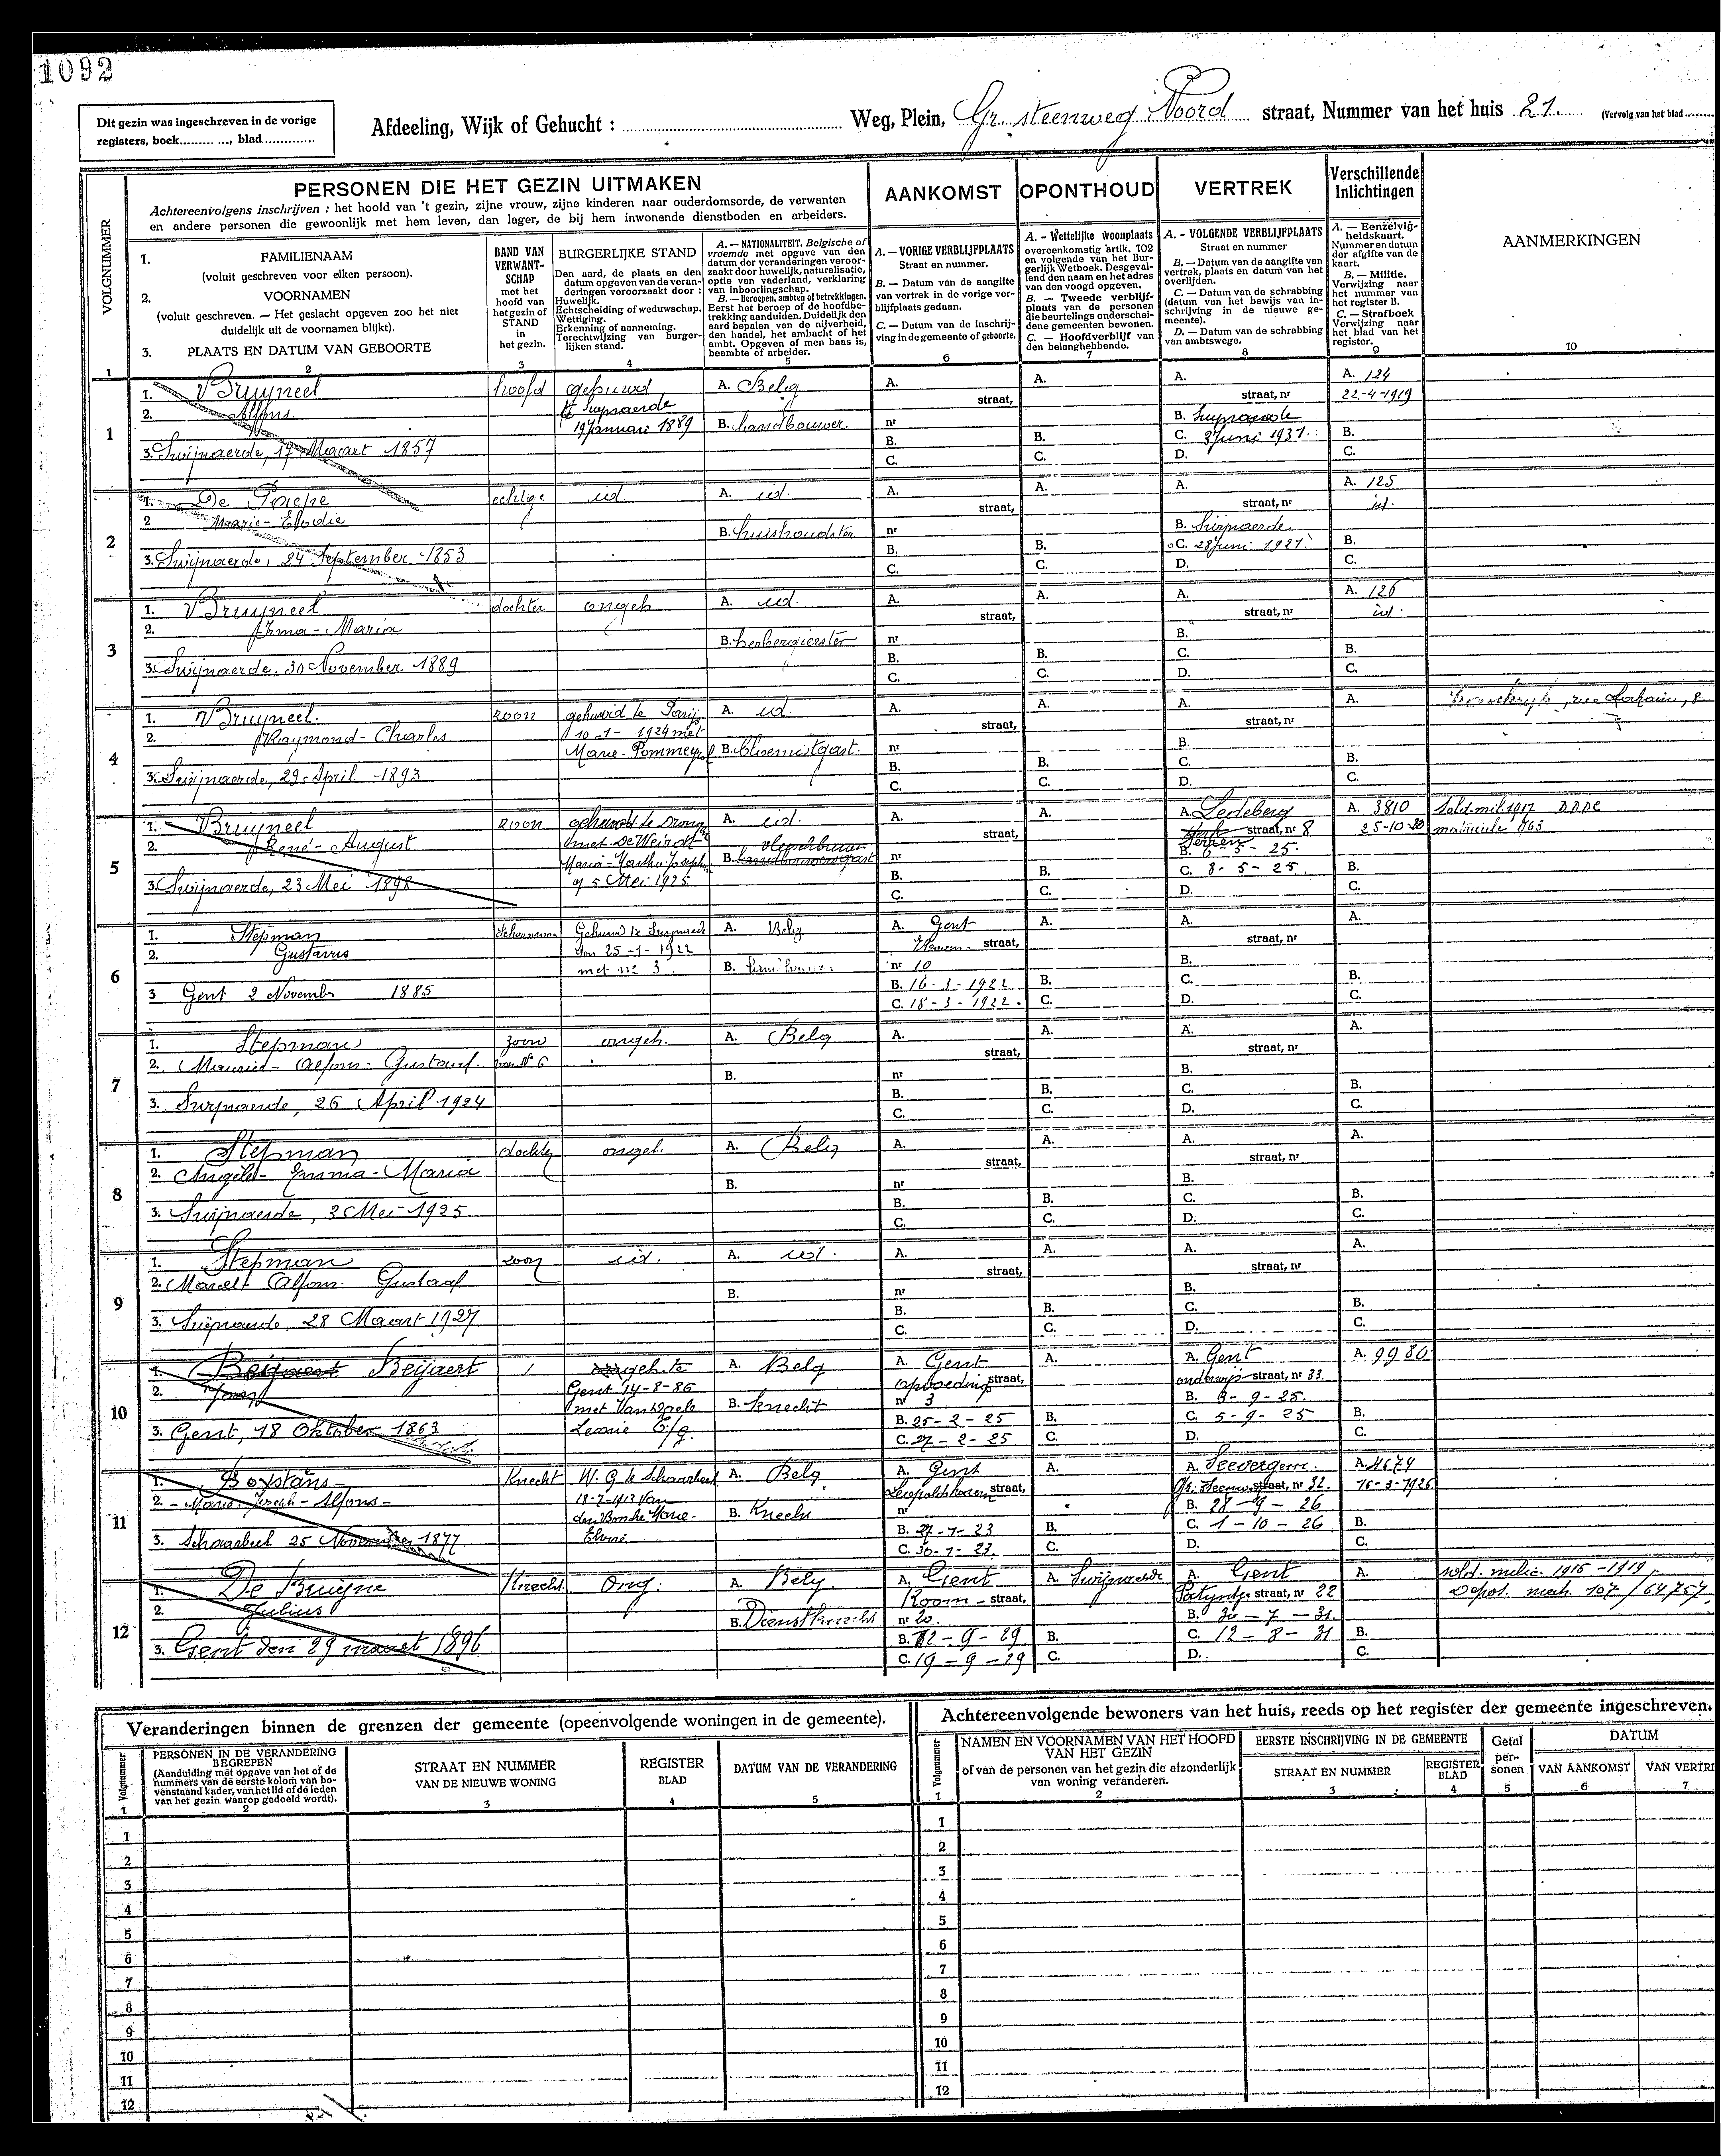 1092
Dit gezin was ingeschreven in de vorige
registers, boek............, blad..............
Afdeeling, Wijk of Gehucht : ............ Weg, Plein, Gr. steenweg Noord straat, Nummer van het huis 21. (Vervolg van het blad ........
PERSONEN DIE HET GEZIN UITMAKEN
Achtereenvolgens inschrijven : het hoofd van 't gezin, zijne vrouw, zijne kinderen naar ouderdomsorde, de verwanten
en andere personen die gewoonlijk met hem leven, dan lager, de bij hem inwonende dienstboden en arbeiders.
AANKOMST
OPONTHOUD
VERTREK
Verschillende
Inlichtingen
VOLGNUMMER
1. FAMILIENAAM
(voluit geschreven voor elken persoon).
2. VOORNAMEN
(voluit geschreven. — Het geslacht opgeven zoo het niet
duidelijk uit de voornamen blijkt).
3. PLAATS EN DATUM VAN GEBOORTE
BAND VAN
VERWANT-
SCHAP
met het
hoofd van
het gezin of
STAND
in
het gezin.
BURGERLIJKE STAND
Den aard, de plaats en den
datum opgeven van de veran-
deringen veroorzaakt door :
Huwelijk.
Echtscheiding of weduwschap.
Wettiging.
Erkenning of aanneming.
Terechtwijzing van burger-
lijken stand.
A. — NATIONALITEIT. Belgische of
vroemde met opgave van den
datum der veranderingen veroor-
zaakt door huwelijk, naturalisatie,
optie van vaderland, verklaring
van inboorlingschap.
B. — Beroepen, ambten of betrekkingen.
Eerst het beroep of de hoofdbe-
trekking aanduiden. Duidelijk den
aard bepalen van de nijverheid,
den handel, het ambacht of het
ambt. Opgeven of men baas is,
beambte of arbeider.
A. — VORIGE VERBLIJFPLAATS
Straat en nummer.
B. — Datum van de aangifte
van vertrek in de vorige ver-
blijfplaats gedaan.
C. — Datum van de inschrij-
ving in de gemeente of geboorte.
A. - Wettelijke woonplaats
overeenkomstig artik. 102
en volgende van het Bur-
gerlijk Wetboek. Desgeval-
lend den naam en het adres
van den voogd opgeven.
B. — Tweede verblijf-
plaats van de personen
die beurtelings onderschei-
dene gemeenten bewonen.
C. — Hoofdverblijf van
den belanghebbende.
A. - VOLGENDE VERBLIJFPLAATS
Straat en nummer
B. — Datum van de aangifte van
vertrek, plaats en datum van het
overlijden.
C. — Datum van de schrabbing
(datum van het bewijs van in-
schrijving in de nieuwe ge-
meente).
D. — Datum van de schrabbing
van ambtswege.
A. — Eenzelvig-
heidskaart.
Nummer en datum
der afgifte van de
kaart.
B. — Militie.
Verwijzing naar
het nummer van
het register B.
C. — Strafboek
Verwijzing naar
het blad van het
register.
AANMERKINGEN
1 2 3 4 5 6 7 8 9 10
1
1. Bruyneel hoofd gehuwd A. Belg A. straat, A. A. straat, nr A. 124
2. Alfons 19 Januari 1889 B. Landbouwer. nr B. 22-4-1919
3. Swijnaerde, 17 Maart 1857 B. C. B. C. C. 3 Juni 1931. D. B. C.
2
1. De Poepe id. A. id. A. straat, A. A. straat, nr A. 125
2 Marie-Elodie B. huishoudster nr B. id.
3. Swijnaerde, 24 September 1853 B. C. B. C. C. 28 Juni 1921. D. B. C.
3
1. Bruyneel dochter ongeh. A. id. A. straat, A. A. straat, nr A. 126
2. Irma-Maria B. herbergierster nr B. id.
3. Swijnaerde, 30 November 1889 B. C. B. C. C. D. B. C.
4
1. Bruyneel. zoon gehuwd te Parijs A. id. A. straat, A. A. straat, nr A.
2. Raymond-Charles 10-1-1924 met
Marie B. bloemistgast. nr B.
3. Swijnaerde, 29 April 1893 B. C. B. C. C. D. B. C.
5
1. Bruyneel zoon gehuwd te A. id. A. straat, A. A. Ledeberg straat, nr 8 A. 3810
2. René-August met B. nr B. 6-5-25. 25-10-20
3. Swijnaerde, 23 Mei 1898 5 Mei 1925 B. C. B. C. C. 8-5-25. D. B. C.
6
1. Stepman Schoonzoon A. Belg A. Gent straat, A. A. straat, nr A.
2. Gustavus den 25-1-1922
met nr 3 B. nr 10 B.
3 Gent 2 Novemb 1885 B. 16-3-1922 C. 18-3-1922. B. C. C. D. B. C.
7
1. Stepman zoon ongeh. A. Belg A. straat, A. A. straat, nr A.
2. Maurice-Alfons-Gustaaf. van No 6 B. nr B.
3. Swijnaerde, 26 April 1924 B. C. B. C. C. D. B. C.
8
1. Stepman dochter ongeh. A. Belg A. straat, A. A. straat, nr A.
2. Angèle-Emma-Maria B. nr B.
3. Swijnaerde, 3 Mei 1925 B. C. B. C. C. D. B. C.
9
1. Stepman zoon id. A. id. A. straat, A. A. straat, nr A.
2. Marcel-Alfons-Gustaaf B. nr B.
3. Swijnaerde, 28 Maart 1927 B. C. B. C. C. D. B. C.
10
1. Beijaert Beijaert A. Belg A. Gent A. A. Gent A. 9980
2. Gent 14-8-86
met Van Daele B. Knecht opvoeding straat, nr 3 straat, nr 33. B. 3-9-25.
3. Gent, 18 Oktober 1863 Leonie B. 25-2-25 C. 27-2-25 B. C. C. 5-9-25 D. B. C.
11
1. Boxstans Knecht A. Belg A. Gent A. A. Seevergem. A. 4674
2. -Marie-Joseph-Alfons- 18-7-1913 Van B. Knecht straat, nr straat, nr 32. B. 28-9-26 16-3-1926
3. Schaarbeek 25 November 1877 B. 27-7-23 C. 30-7-23. B. C. C. 1-10-26 D. B. C.
12
1. De Bruyne Knecht. Ong. A. Belg. A. Gent A. Swijnaerde A. Gent A.
2. Julius B. Dienstknecht Room-straat, nr 20. straat, nr 22 B. 30-7-31.
3. Gent den 29 maart 1896. B. 12-9-29 C. 19-9-29 B. C. C. 12-8-31 D. B. C.
Veranderingen binnen de grenzen der gemeente (opeenvolgende woningen in de gemeente).
Volgnummer
PERSONEN IN DE VERANDERING
BEGREPEN
(Aanduiding met opgave van het of de
nummers van de eerste kolom van bo-
venstaand kader, van het lid of de leden
van het gezin waarop gedoeld wordt).
STRAAT EN NUMMER
VAN DE NIEUWE WONING
REGISTER
BLAD
DATUM VAN DE VERANDERING
1 2 3 4 5
1
2
3
4
5
6
7
8
9
10
11
12
Achtereenvolgende bewoners van het huis, reeds op het register der gemeente ingeschreven.
Volgnummer
NAMEN EN VOORNAMEN VAN HET HOOFD
VAN HET GEZIN
of van de personen van het gezin die afzonderlijk
van woning veranderen.
EERSTE INSCHRIJVING IN DE GEMEENTE
STRAAT EN NUMMER
REGISTER
BLAD
Getal
per-
sonen
DATUM
VAN AANKOMST
VAN VERTRE
1 2 3 4 5 6 7
1
2
3
4
5
6
7
8
9
10
11
12